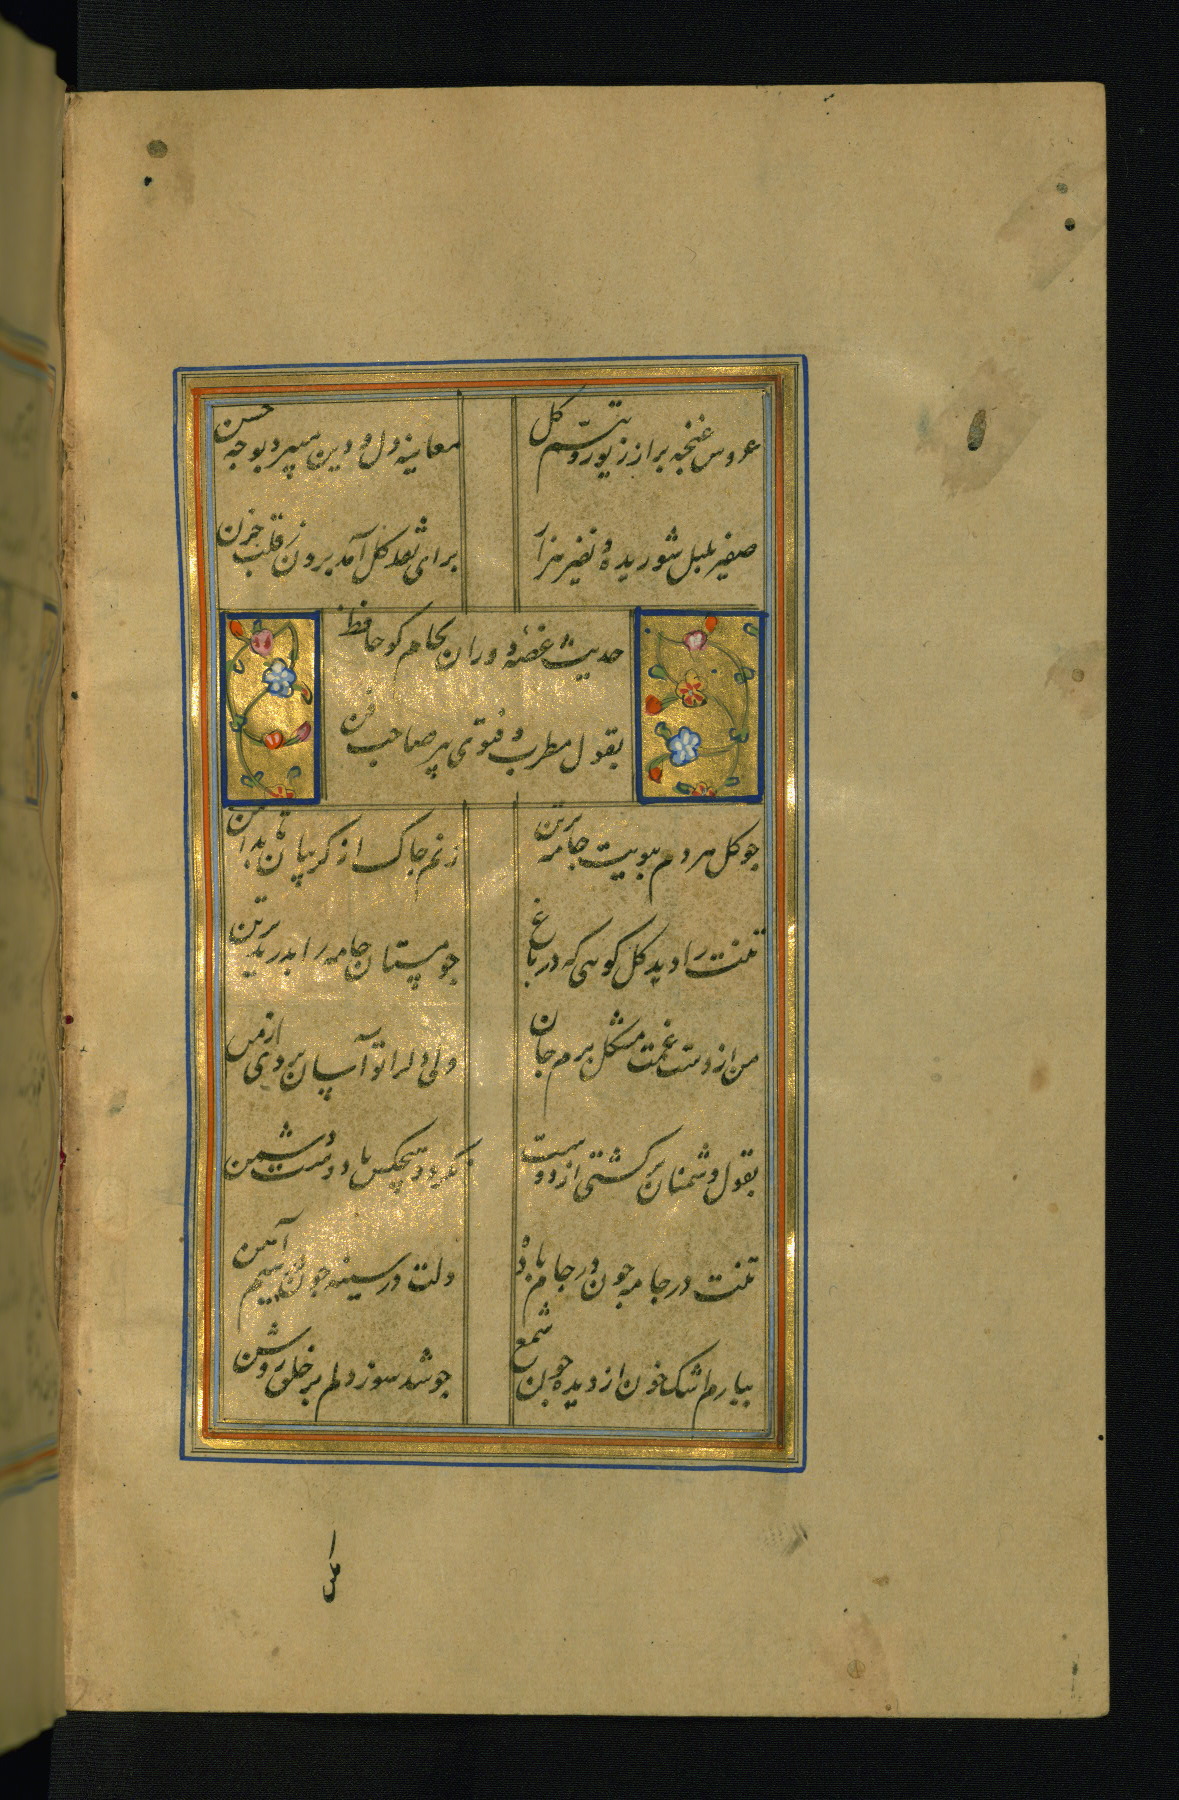 عروس غنچه برآمد ز زیور و تبسم کل
معاینه دل و دین میبرد بوجه حسن
صفیر بلبل شوریده و نفیر هزار
برای نقد کل آمد برون ز قلب حزن
حدیث غصه دوران بجام کو حافظ
بقول مطرب و فتوی پیر صاحب فن
جو کل هر دم ببویت جامه بر تن
زنم جاک از کریبان تا بدامن
تنت را دید کل کویی که در باغ
جو مستان جامه را بدرید بر تن
من از دست غمت مشکل برم جان
ولی دلرا تو آسان بردی از من
بقول دشمنان برکشتی از دوست
نکردد هیچکس با دوست دشمن
تنت در جامه جون در جام باده
دلت در سینه جون در سیم آهن
ببار ای اشک خون از دیده جون شمع
جو شد سوز دلم بر خلق روشن
مکن